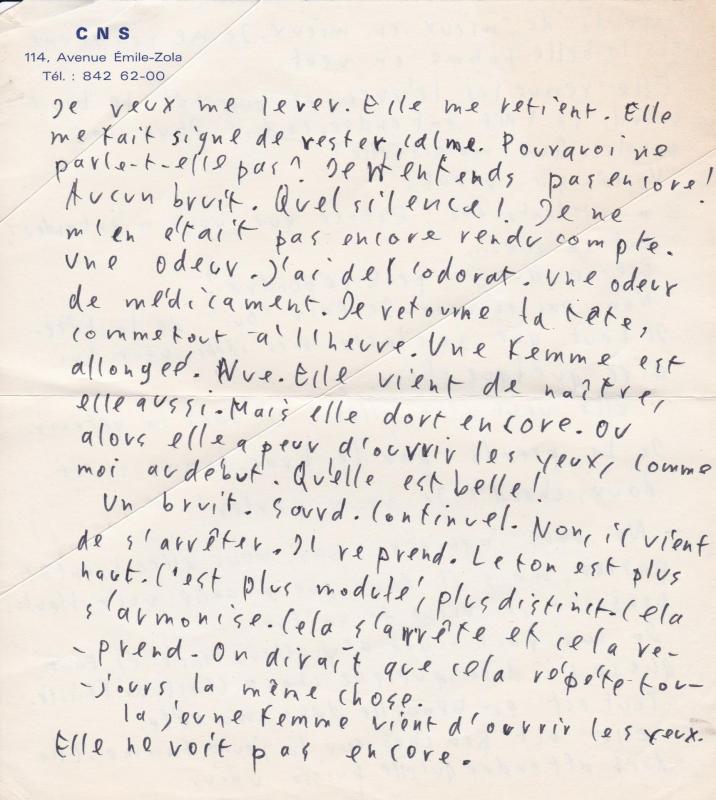 CNS
114, Avenue Émile-Zola
Tél. : 842 62-00
Je veux me lever. Elle me retient. Elle
me fait signe de rester calme. Pourquoi ne
parle-t-elle pas? Je n'entends pas encore!
Aucun bruit. Quel silence! Je ne
m'en était pas encore rendu compte.
Une odeur. J'ai de l'odorat. Une odeur
de médicament. Je retourne la tête,
comme tout à l'heure. Une femme est
allongée. Nue. Elle vient de naître,
elle aussi. Mais elle dort encore. Ou
alors elle a peur d'ouvrir les yeux, comme
moi au début. Qu'elle est belle!
Un bruit. Sourd. Continuel. Non, il vient
de s'arrêter. Il reprend. Le ton est plus
haut. C'est plus modulé, plus distinct. Cela
s'armonise. Cela s'arrête et cela re-
-prend. On dirait que cela répète tou-
-jours la même chose.
La jeune femme vient d'ouvrir les yeux.
Elle ne voit pas encore.